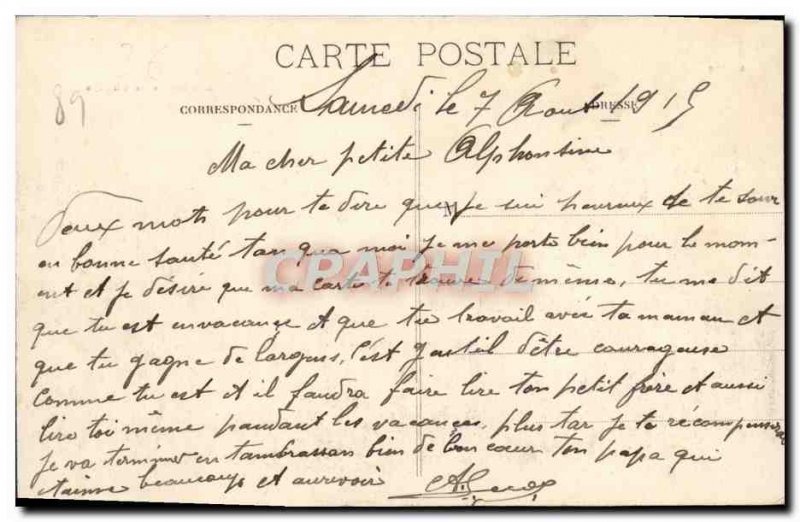 CARTE POSTALE
89
CORRESPONDANCE
ADRESSE
Samedi le 7 Aout 1915
Ma cher petite Alphonsine
Deux moth pour te dire que je sui heureux de te savr
en bonne santé tan qua moi je me porte bien pour le mom-
ent et je désire que ma carte te trouve de même, tu me dit
que tu est en vacance et que tu travail avec ta maman et
que tu gagne de largens, c'est gentil d'être courageuse
comme tu est et il faudra faire lire ton petit frère et aussi
lire toi même pandant les vacances, plus tar je te récompenserai
je va terminer en tambrassan bien de bon cœur ton papa qui
t'aime beaucoup et aurevoir
CPAPHIL